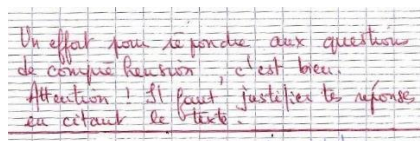 Un effort pour répondre aux question
de compréhension, c'est bien.
Attention ! Il faut justifier tes réponse
en citant le texte.